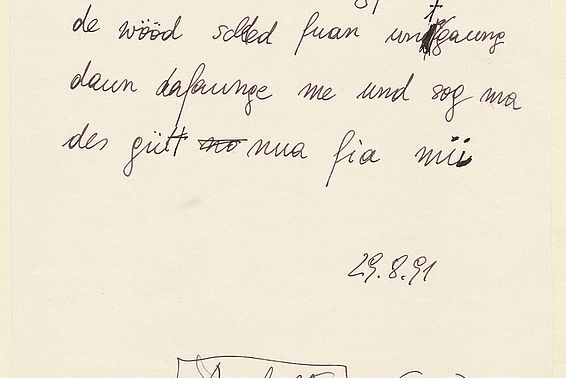 de wööd solled fuan untgaung
daun dafaunge me und sog ma
des güt nua fia mii
29.8.91